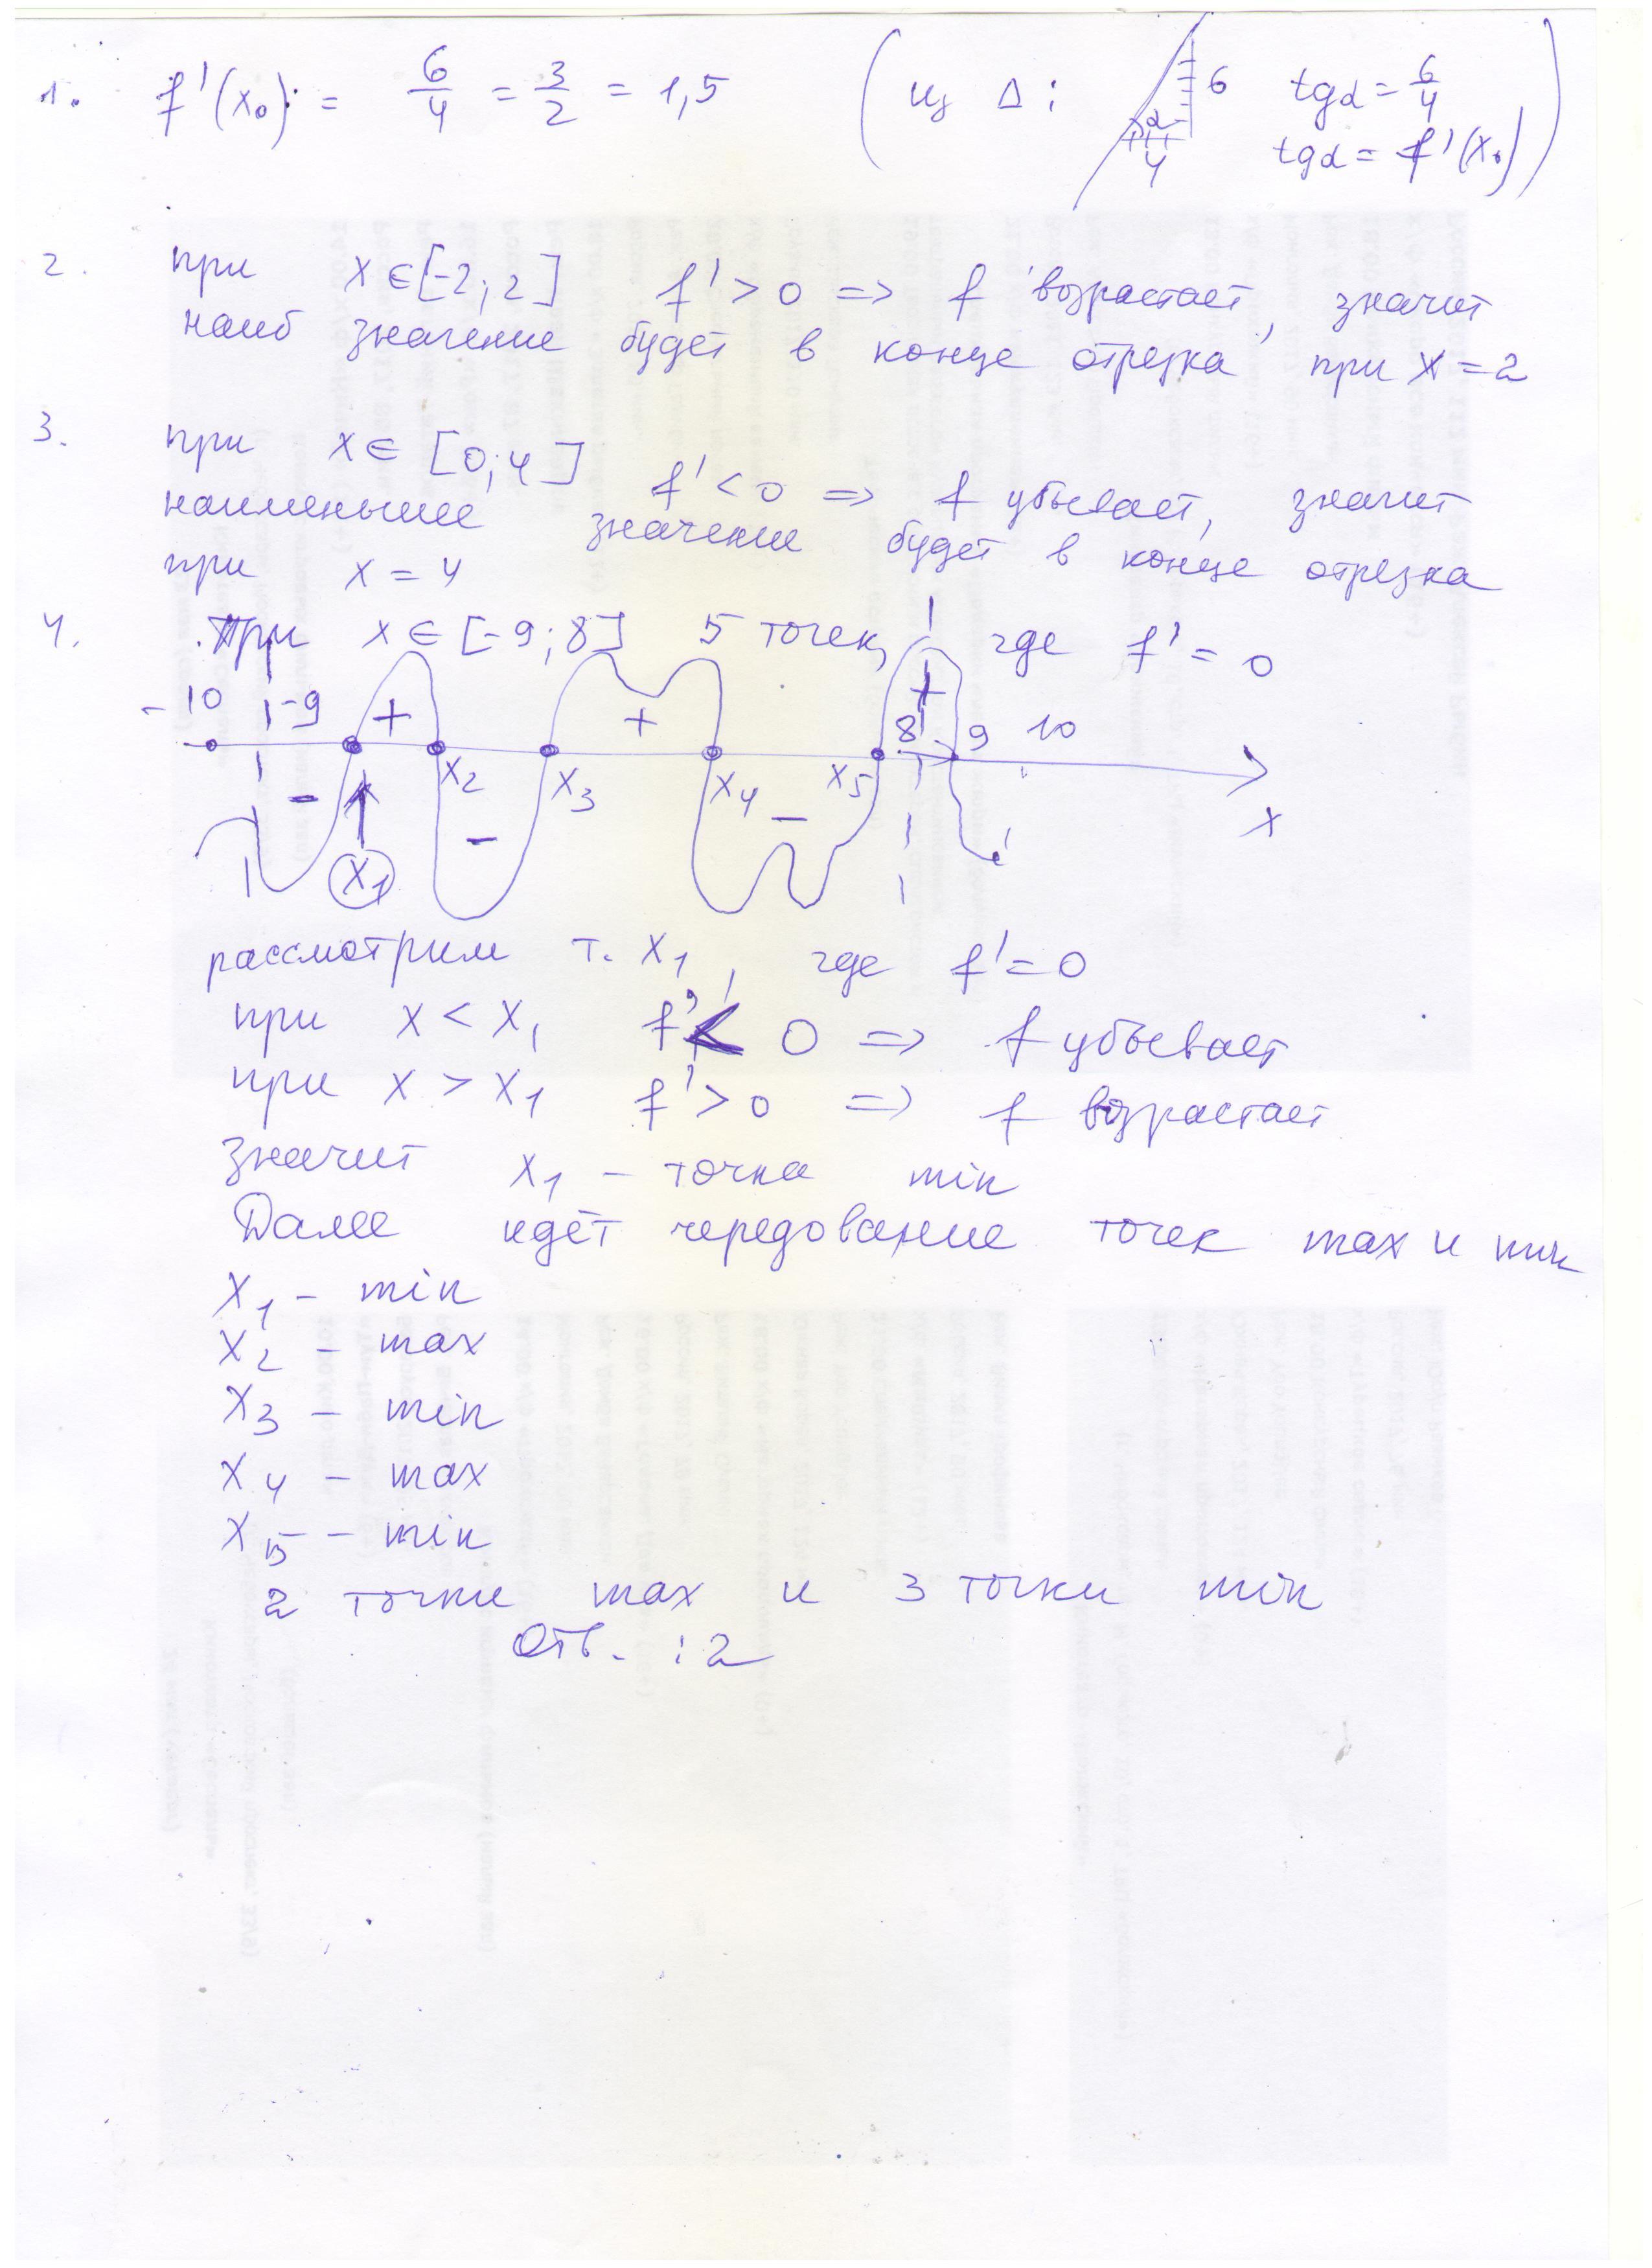 1. f'(x₀) = 6/4 = 3/2 = 1,5 (из Δ: α 4 6 tgα = 6/4
tgα = f'(x₀))
2. при x ∈ [-2; 2] f' > 0 => f возрастает, значит
наиб значение будет в конце отрезка при x = 2
3. при x ∈ [0; 4] f' < 0 => f убывает, значит
наименьшее значение будет в конце отрезка
при x = 4
4. При x ∈ [-9; 8] 5 точек, где f' = 0
-10 -9 + + + 8 9 10
- x₂ x₃ x₄ x₅ x
x₁ - -
рассмотрим т. x₁, где f' = 0
при x < x₁ f' < 0 => f убывает
при x > x₁ f' > 0 => f возрастает
значит x₁ - точка min
Далее идёт чередование точек max и min
x₁ - min
x₂ - max
x₃ - min
x₄ - max
x₅ - min
2 точки max и 3 точки min
Отв. : 2